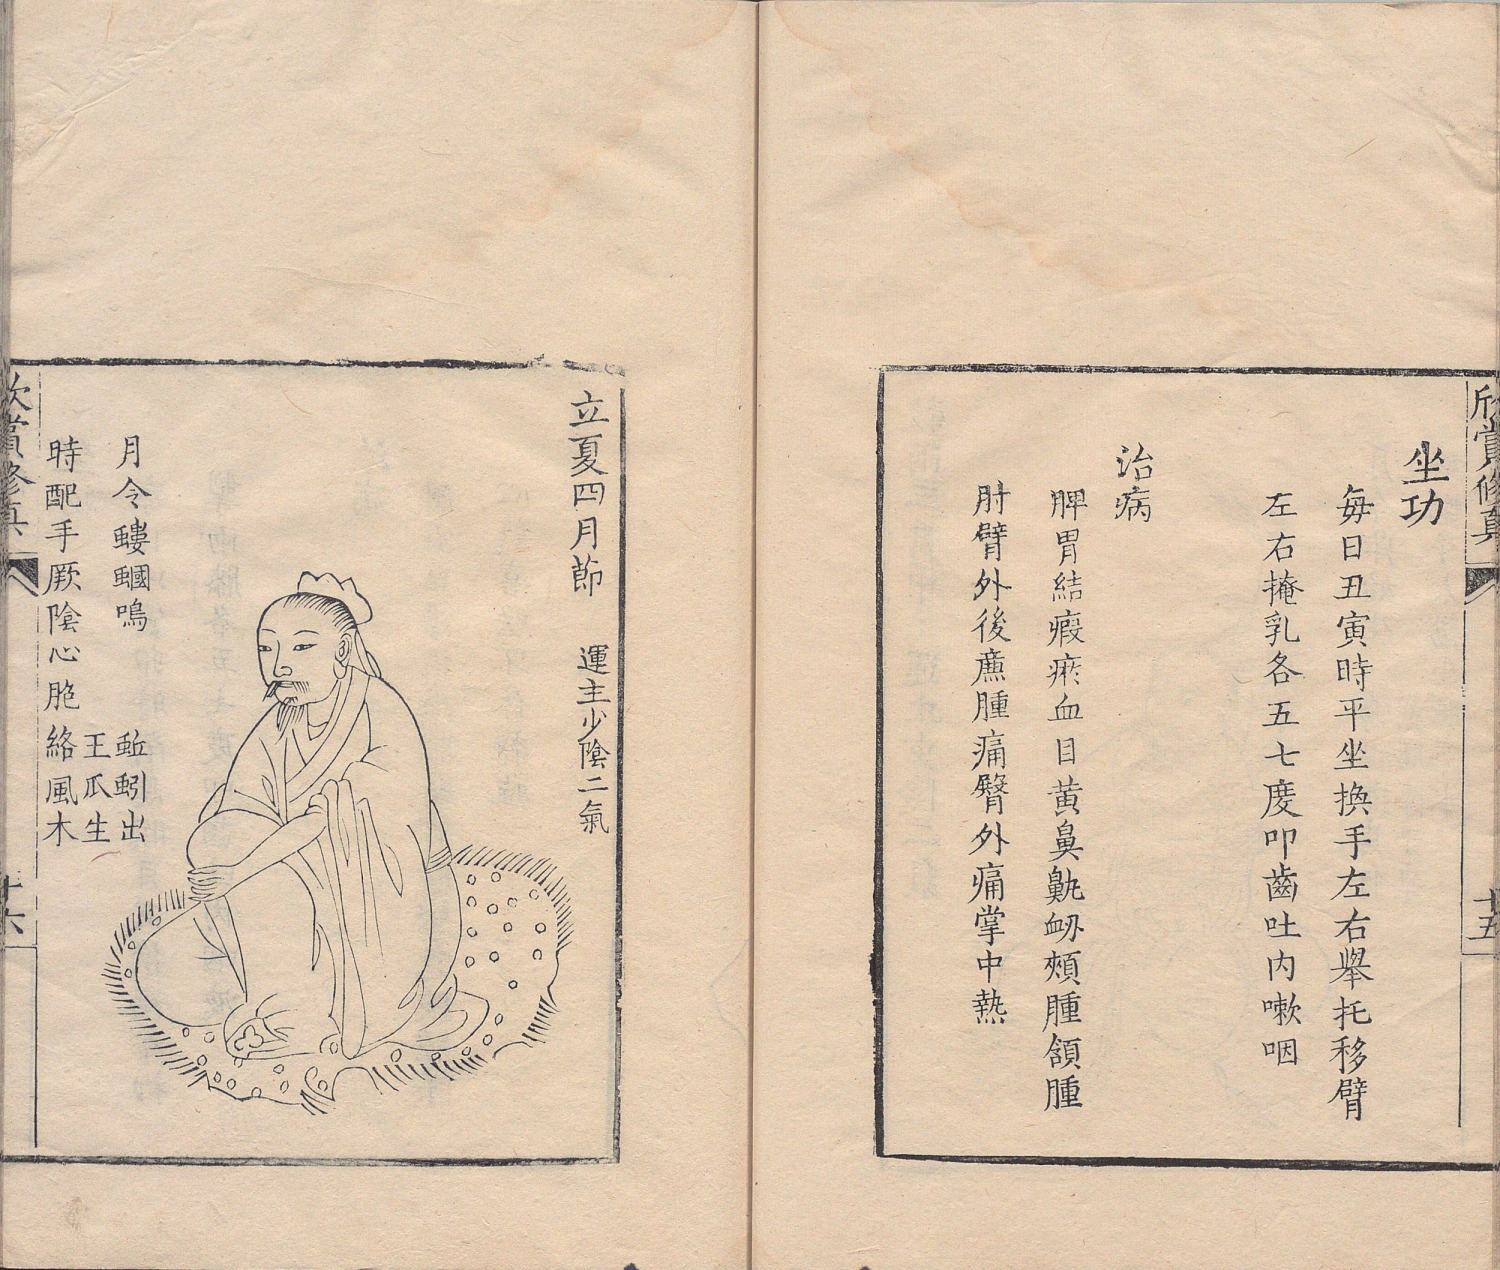 欣賞修真
十五
坐功
每日丑寅時平坐換手左右舉托移臂
左右掩乳各五七度叩齒吐內嗽咽
治病
脾胃結瘕瘀血目黃鼻鼽衂頰腫頷腫
肘臂外後廉腫痛臂外痛掌中熱
立夏四月節 運主少陰二氣
月令螻蟈鳴 蚯蚓出
王瓜生
時配手厥陰心胞絡風木
欣賞修真
十六